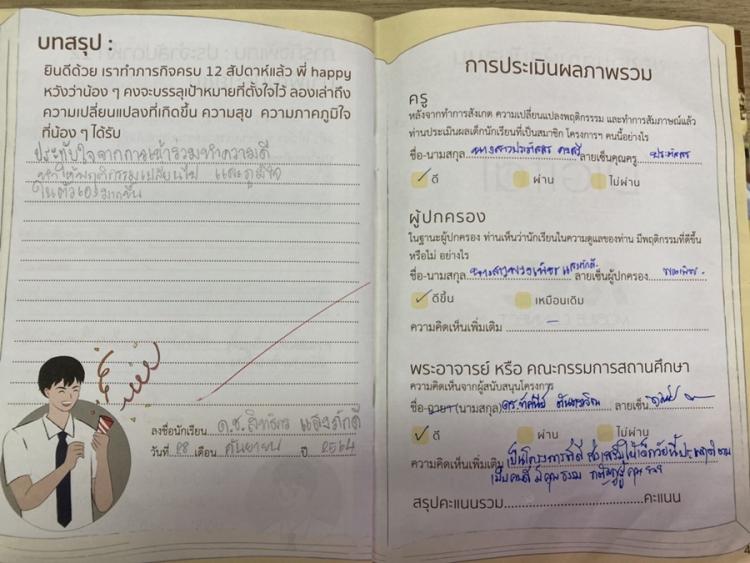 บทสรุป :
ยินดีด้วย เราทำภารกิจครบ 12 สัปดาห์แล้ว พี่ happy
หวังว่าน้อง ๆ คงจะบรรลุเป้าหมายที่ตั้งใจไว้ ลองเล่าถึง
ความเปลี่ยนแปลงที่เกิดขึ้น ความสุข ความภาคภูมิใจ
ที่น้อง ๆ ได้รับ
ประทับใจจากการเข้าร่วมทำความดี
ทำให้พฤติกรรมเปลี่ยนไป และภูมิใจ
ในตัวเองมากขึ้น
ลงชื่อนักเรียน ด.ช. แสงภักดี
วันที่ 28 เดือน กันยายน ปี 2564
การประเมินผลภาพรวม
ครู
หลังจากทำการสังเกต ความเปลี่ยนแปลงพฤติกรรม และทำการสัมภาษณ์แล้ว
ท่านประเมินผลเด็กนักเรียนที่เป็นสมาชิก โครงการฯ คนนี้อย่างไร
ชื่อ-นามสกุล นางสาวประภัสสร ลายเซ็นคุณครู ประภัสสร
ดี ผ่าน ไม่ผ่าน
ผู้ปกครอง
ในฐานะผู้ปกครอง ท่านเห็นว่านักเรียนในความดูแลของท่าน มีพฤติกรรมที่ดีขึ้น
หรือไม่ อย่างไร
ชื่อ-นามสกุล แสงภักดี ลายเซ็นผู้ปกครอง
ดีขึ้น เหมือนเดิม
ความคิดเห็นเพิ่มเติม -
พระอาจารย์ หรือ คณะกรรมการสถานศึกษา
ความคิดเห็นจากผู้สนับสนุนโครงการ
ชื่อ-ฉายา (นามสกุล) ลายเซ็น
ดี ผ่าน ไม่ผ่าน
ความคิดเห็นเพิ่มเติม เป็นโครงการที่ดี ส่งเสริมให้เด็กวัยนี้
เป็นคนดี มีคุณธรรม
สรุปคะแนนรวม คะแนน